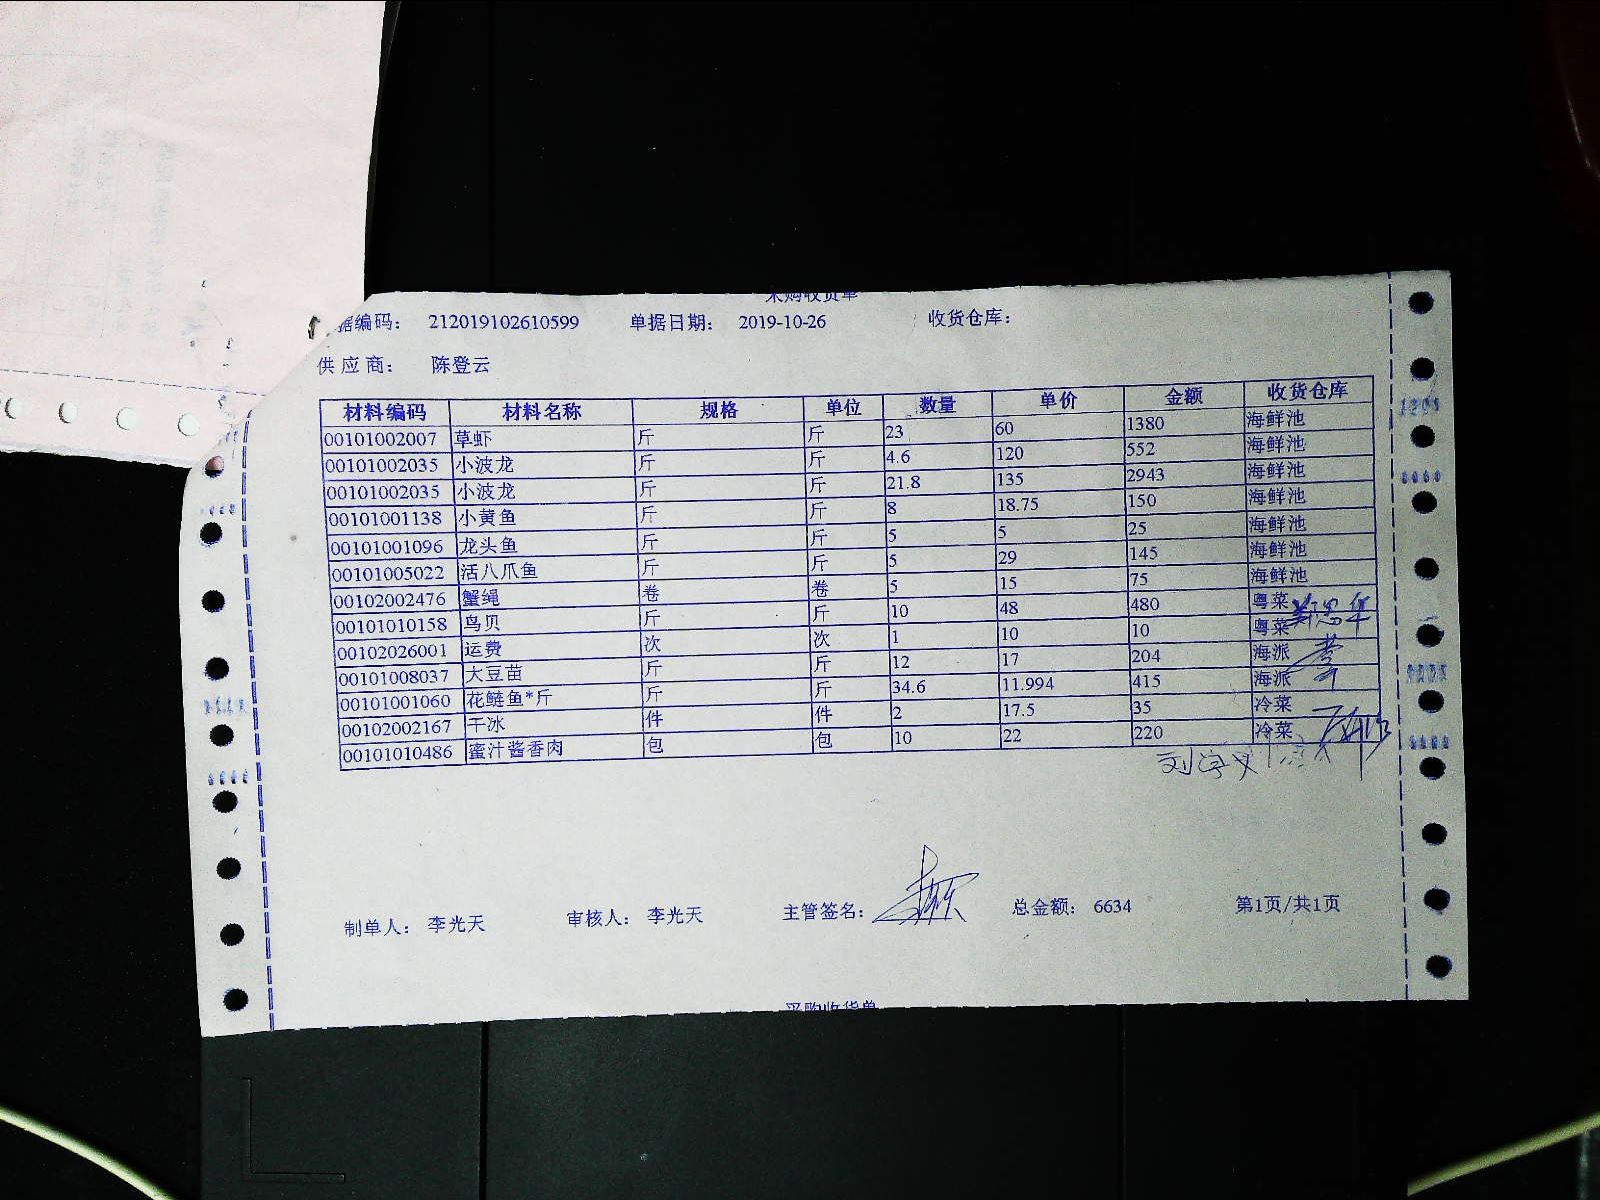 采购收货单
据编码： 212019102610599 单据日期： 2019-10-26 收货仓库：
供应商： 陈登云
材料编码 材料名称 规格 单位 数量 单价 金额 收货仓库
00101002007 草虾 斤 斤 23 60 1380 海鲜池
00101002035 小波龙 斤 斤 4.6 120 552 海鲜池
00101002035 小波龙 斤 斤 21.8 135 2943 海鲜池
00101001138 小黄鱼 斤 斤 8 18.75 150 海鲜池
00101001096 龙头鱼 斤 斤 5 5 25 海鲜池
00101005022 活八爪鱼 斤 斤 5 29 145 海鲜池
00102002476 蟹绳 卷 卷 5 15 75 海鲜池
00101010158 鸟贝 斤 斤 10 48 480 粤菜
00102026001 运费 次 次 1 10 10 粤菜
00101008037 大豆苗 斤 斤 12 17 204 海派
00101001060 花鲢鱼*斤 斤 斤 34.6 11.994 415 海派
00102002167 干冰 件 件 2 17.5 35 冷菜
00101010486 蜜汁酱香肉 包 包 10 22 220 冷菜
制单人： 李光天 审核人： 李光天 主管签名： 总金额： 6634 第1页/共1页
采购收货单